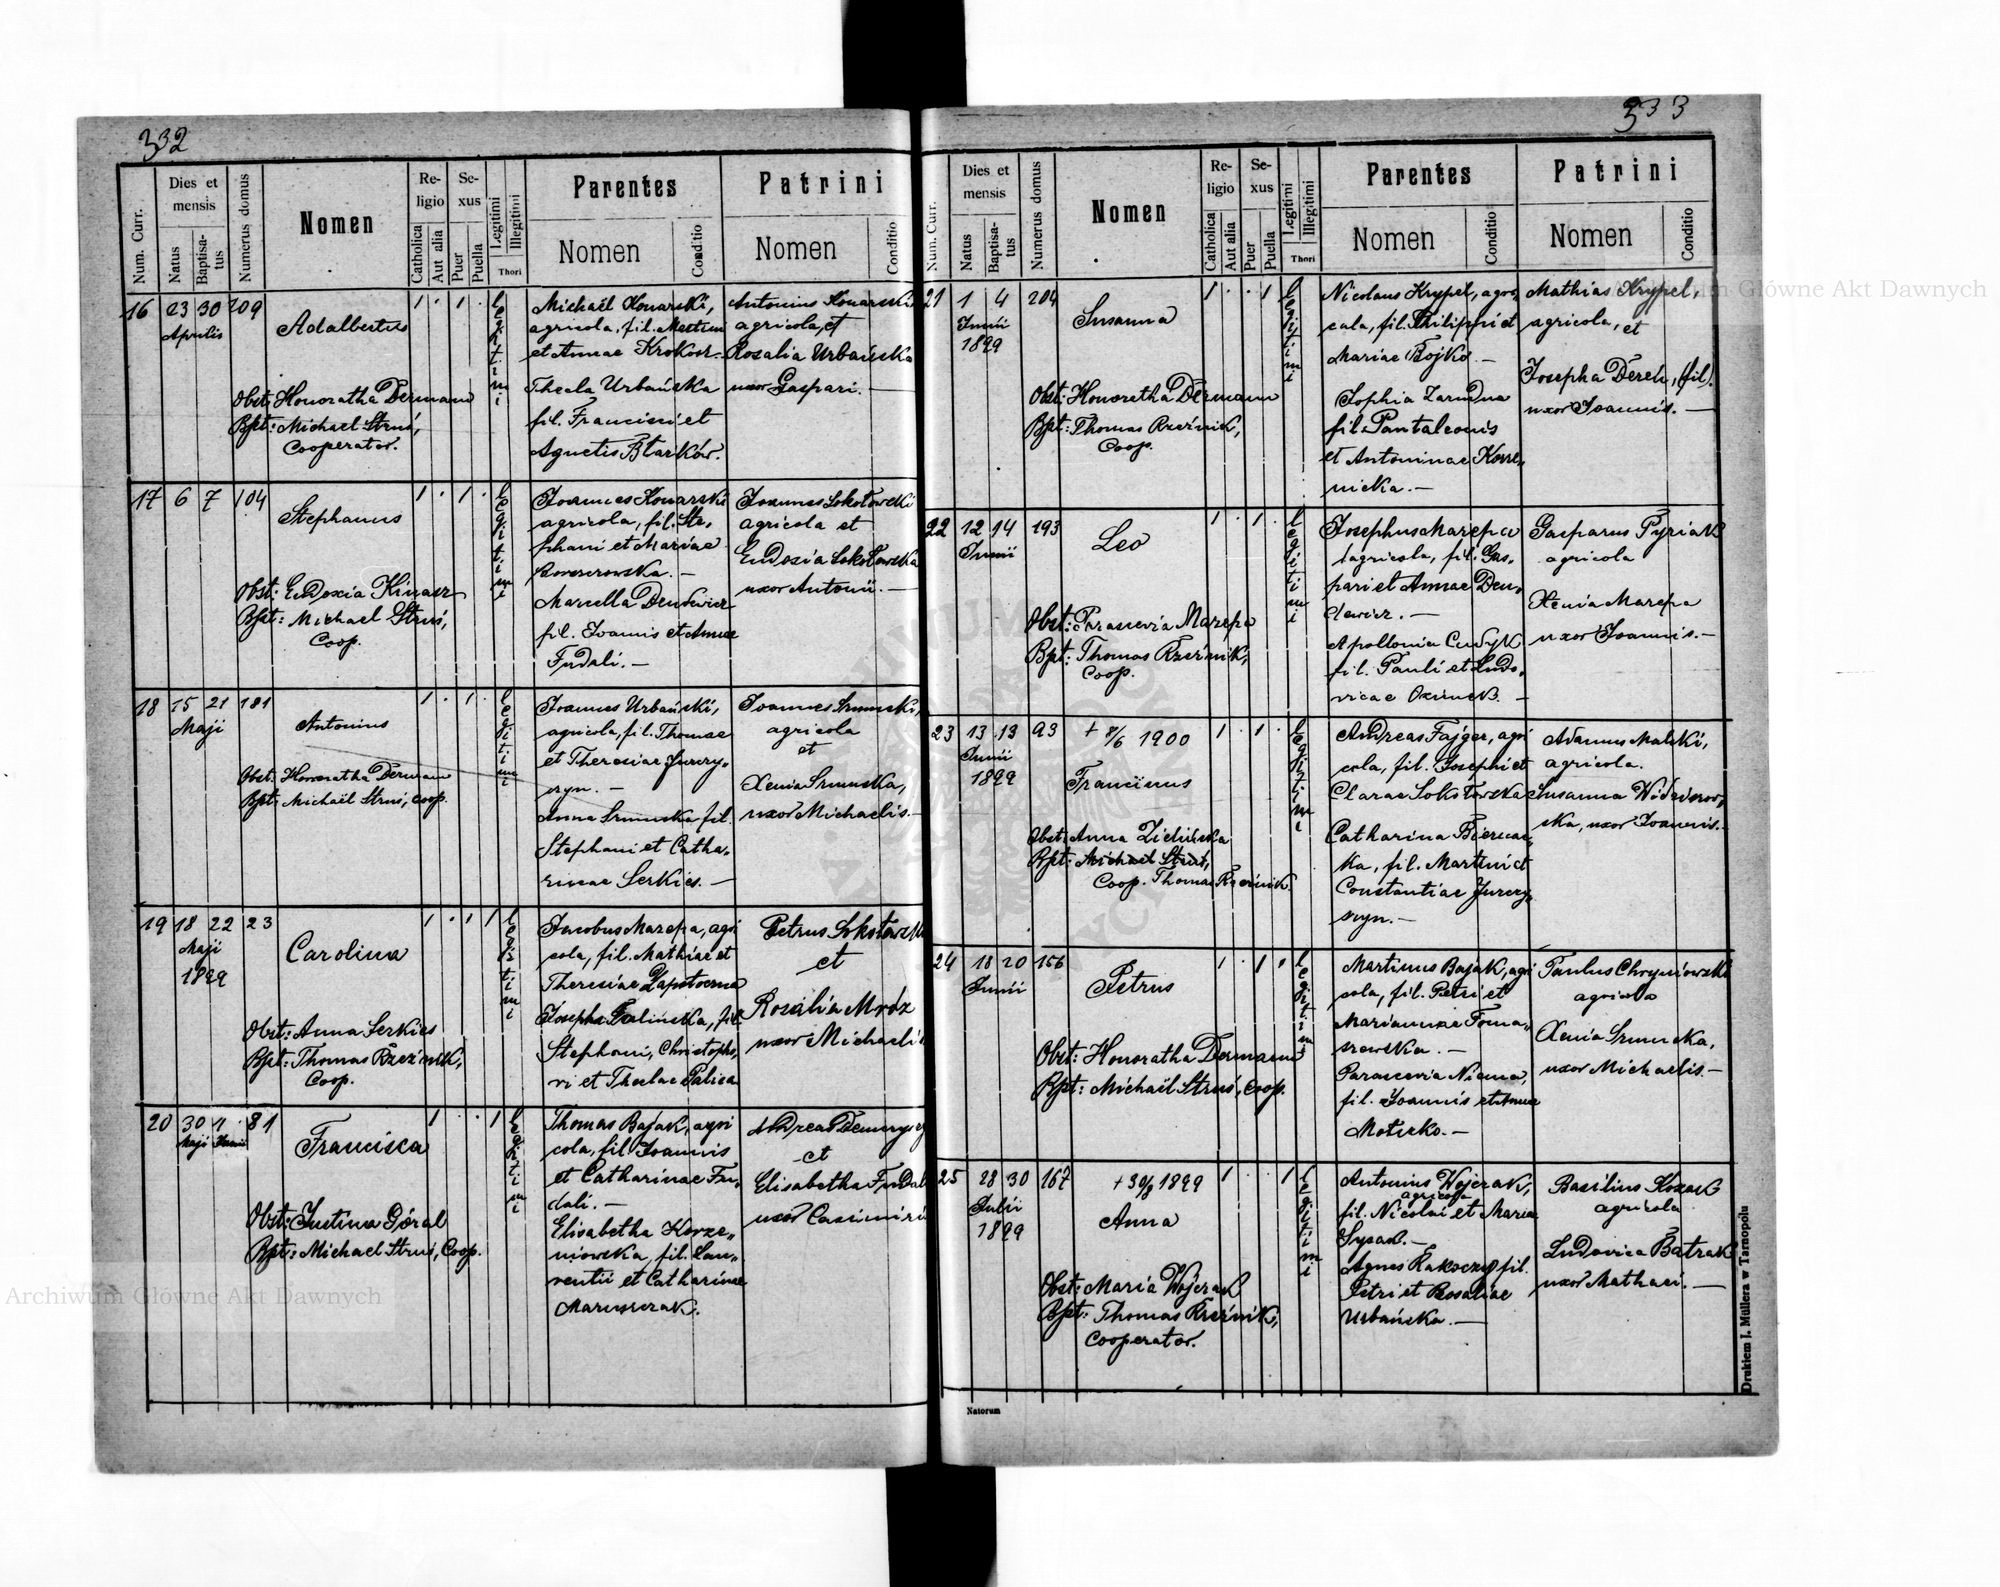 332
Num. Curr.
Dies et
mensis
Natus
Baptisa-
tus
Numerus domus
Nomen
Re-
ligio
Catholica
Aut alia
Se-
xus
Puer
Puella
Legitimi
Illegitimi
Thori
Parentes
Nomen
Conditio
Patrini
Nomen
Conditio
16 23 30 209
Aprilis
Adalbertus
Obst: Honoratha Dermann
Bpt: Michael Struś,
Cooperator.
1 . 1 .
legitimi
Michaël Konarski,
agricola, fil. Martini
et Annae
Thecla Urbańska
fil. Francisci et
Agnetis
Antonius Konarski
agricola, et
Rosalia Urbańska
uxor Gaspari. —
17 6 7 104
Stephanus
Obst: Eudoxia Kinasz
Bpt: Michael Struś,
Coop.
1 . 1 .
legitimi
Joannes Konarski
agricola, fil. Ste„
phani et Mariae
Marcella
fil. Joannis et Annae
Fudali. —
Joannes Sokołowski
agricola et
Eudoxia Sokołowska
uxor Antonii. —
18 15 21 181
Maji
Antonius
Obst: Honoratha Dermann
Bpt: Michaël Struś, coop.
1 . 1 .
legitimi
Joannes Urbański,
agricola, fil. Thomae
et Theresiae Jurczy„
szyn. —
Anna fil.
Stephani et Catha„
rinae Serkies. —
Joannes
agricola
et
Xenia
uxor Michaelis. —
19 18 22 23
Maji
1899
Carolina
Obst: Anna Serkies
Bpt: Thomas Rzeźnik,
Coop.
1 . 1
legitimi
Jacobus Marepa, agri
cola, fil. Mathiae et
Theresiae
Josepha fil.
Stephani,
et Theclae Palica
Petrus
et
Rosalia Mróz
uxor Michaelis
20 30 1 81
Maji Junii
Francisca
Obst: Justina Góral
Bpt: Michael Struś, Coop.
1 . . 1
legitimi
Thomas Bajak, agri
cola, fil. Joannis
et Catharinae Fu„
dali. —
Elisabetha Korze„
niowska, fil. Lau„
rentii et Catharinae
Maruszczak.
Andreas
et
Elisabetha Fudali
uxor Casimiri
333
Num. Curr.
Dies et
mensis
Natus
Baptisa-
tus
Numerus domus
Nomen
Re-
ligio
Catholica
Aut alia
Se-
xus
Puer
Puella
Legitimi
Illegitimi
Thori
Parentes
Nomen
Conditio
Patrini
Nomen
Conditio
21 1 4 204
Junii
1899
Susanna
Obst: Honoratha Dermann
Bpt: Thomas Rzeźnik,
Coop.
1 . . 1
legitimi
Nicolaus Krypel, agri
cola, fil. Philippi et
Mariae Bojko. —
Sophia
fil. Pantaleonis
et Antoninae Korze„
nicka. —
Mathias Krypel,
agricola, et
Josepha Dereń, (fil).
uxor Joannis. —
22 12 14 193
Junii
Leo
Obst: Parascevia Marepa
Bpt: Thomas Rzeźnik,
Coop.
1 . 1 .
legitimi
Josephus Marepa
agricola, fil. Gas„
pari et Annae
Apollonia
fil. Pauli et Ludo„
vicae
Gasparus Pyriak
agricola
Xenia Marepa
uxor Joannis. —
23 13 13 93
Junii
1899
+ 8/6 1900
Franciscus
Obst: Anna Zielińska
Bpt: Michael Struś,
Coop. Thomas Rzeźnik
1 . 1 .
legitimi
Andreas Fajger, agri
cola, fil. Josephi et
Clarae Sokołowska
Catharina Biernac„
ka, fil. Martini et
Constantiae Jurczy„
szyn. —
Adamus Malski,
agricola.
Susanna
uxor Joannis. —
24 18 20 156
Junii
Petrus
Obst: Honoratha Dermann
Bpt: Michaël Struś, coop.
1 . 1 .
legitimi
Martinus Bajak, agri
cola, fil. Petri et
Mariannae Toma„
szewska. —
Parascevia
fil. Joannis et Annae
—
Paulus
agricola
Xenia
uxor Michaelis. —
25 28 30 167
Julii
1899
+ 30/8 1899
Anna
Obst: Maria Wojczak
Bpt: Thomas Rzeźnik,
Cooperator.
1 . . 1
legitimi
Antonius Wojczak,
agricola
fil. Nicolai et Maria
Sysak. —
Agnes Rakoczy fil.
Petri et Rosaliae
Urbańska. —
Basilius Kozak
agricola
Ludovica Batrak
uxor —
Drukiem J. Müllera w Tarnopolu
Natorum
Archiwum Główne Akt Dawnych
Archiwum Główne Akt Dawnych